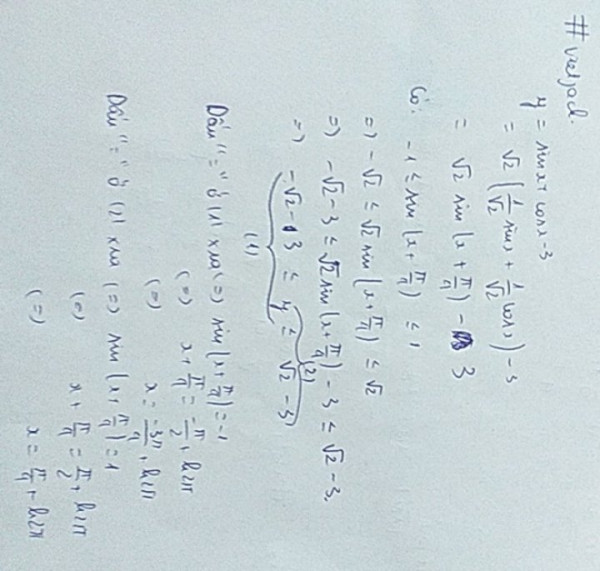 #vietjack.
y = sinx + cosx - 3
= √2 (1/√2 sinx + 1/√2 cosx) - 3
= √2 sin(x + π/4) - 3
Có: -1 ≤ sin(x + π/4) ≤ 1
=) -√2 ≤ √2 sin(x + π/4) ≤ √2
=) -√2 - 3 ≤ √2 sin(x + π/4) - 3 ≤ √2 - 3.
=) -√2 - 3 ≤ y ≤ √2 - 3
(1) (2)
Dấu "=" ở (1) xra (=) sin(x + π/4) = -1
(=) x + π/4 = -π/2 + k2π
(=) x = -3π/4 + k2π
Dấu "=" ở (2) xra (=) sin(x + π/4) = 1
(=) x + π/4 = π/2 + k2π
(=) x = π/4 + k2π